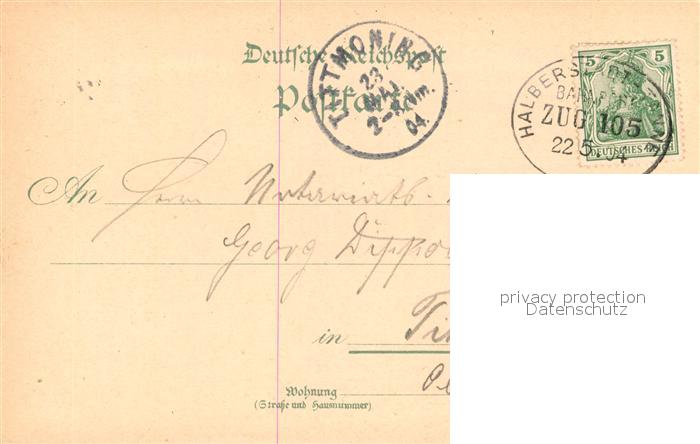 Deutsche Reichspost
Postkarte
TITTMONING
23
MAI
2-3 Nm.
04
HALBERSTADT
BAHNPOST
ZUG 105
22 5. 04
5 5
DEUTSCHES REICH
An Herrn Notariats-
Georg
in
Wohnung
(Straße und Hausnummer)
privacy protection
Datenschutz